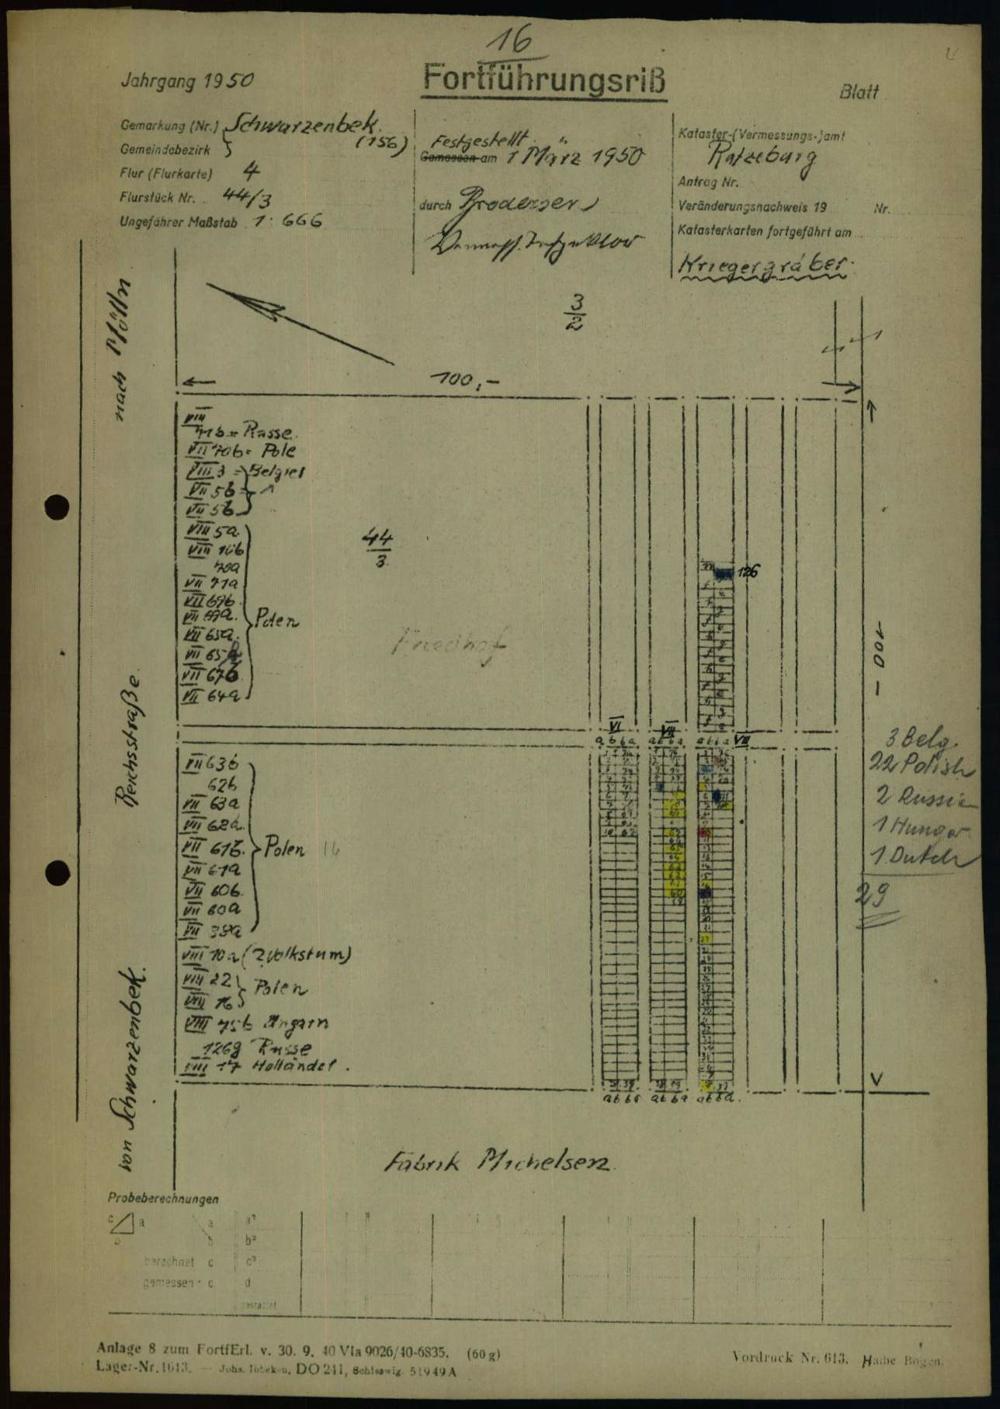 16
Jahrgang 1950
Fortführungsriß
Blatt
Gemarkung (Nr.) Schwarzenbek
(156)
Gemeindebezirk
Flur (Flurkarte) 4
Flurstück Nr. 44/3
Ungefährer Maßstab 1:666
Festgestellt
Gemessen am 1 März 1950
durch
Kataster-(Vermessungs-)amt
Ratzeburg
Antrag Nr.
Veränderungsnachweis 19 Nr.
Katasterkarten fortgeführt am
Kriegergräber
nach Mölln
3
2
100,-
VIII
71b = Russe
VII 70b = Pole
VIII 3 = Belgier
VII 5b = "
VII 5b
VIII 5a
VIII 10b
70a
VII 71a
VII 69b
VII 69a
VII 65a
VII 65b
VII 67b
VII 64a
Polen
44
3
Friedhof
126
- 100 -
VI
VII
VIII
a b b a
a b b a
a b b a
Reichsstraße
VII 63b
62b
VII 63a
VII 62a
VII 61b
VII 61a
VII 60b
VII 60a
VII 59a
Polen 16
VIII 10a (2 Volkstum)
VIII 22
VIII 16
Polen
VIII 75b Ungarn
126g Russe
VIII 17 Holländer.
3 Belg.
22 Polish
2 Russia
1 Hungar
1 Dutch
29
von Schwarzenbek.
a b b a
a b b a
a b b a
Fabrik Michelsen
Probeberechnungen
c a
b
a a²
b b²
berechnet c c²
gemessen c d
gestattet
Anlage 8 zum FortfErl. v. 30. 9. 40 VIa 9026/40-6835. (60 g)
Lager-Nr. 1613. — Johs. Ibbeken, DO 241, Schleswig 51949 A
Vordruck Nr. 613. Halbe Bogen.